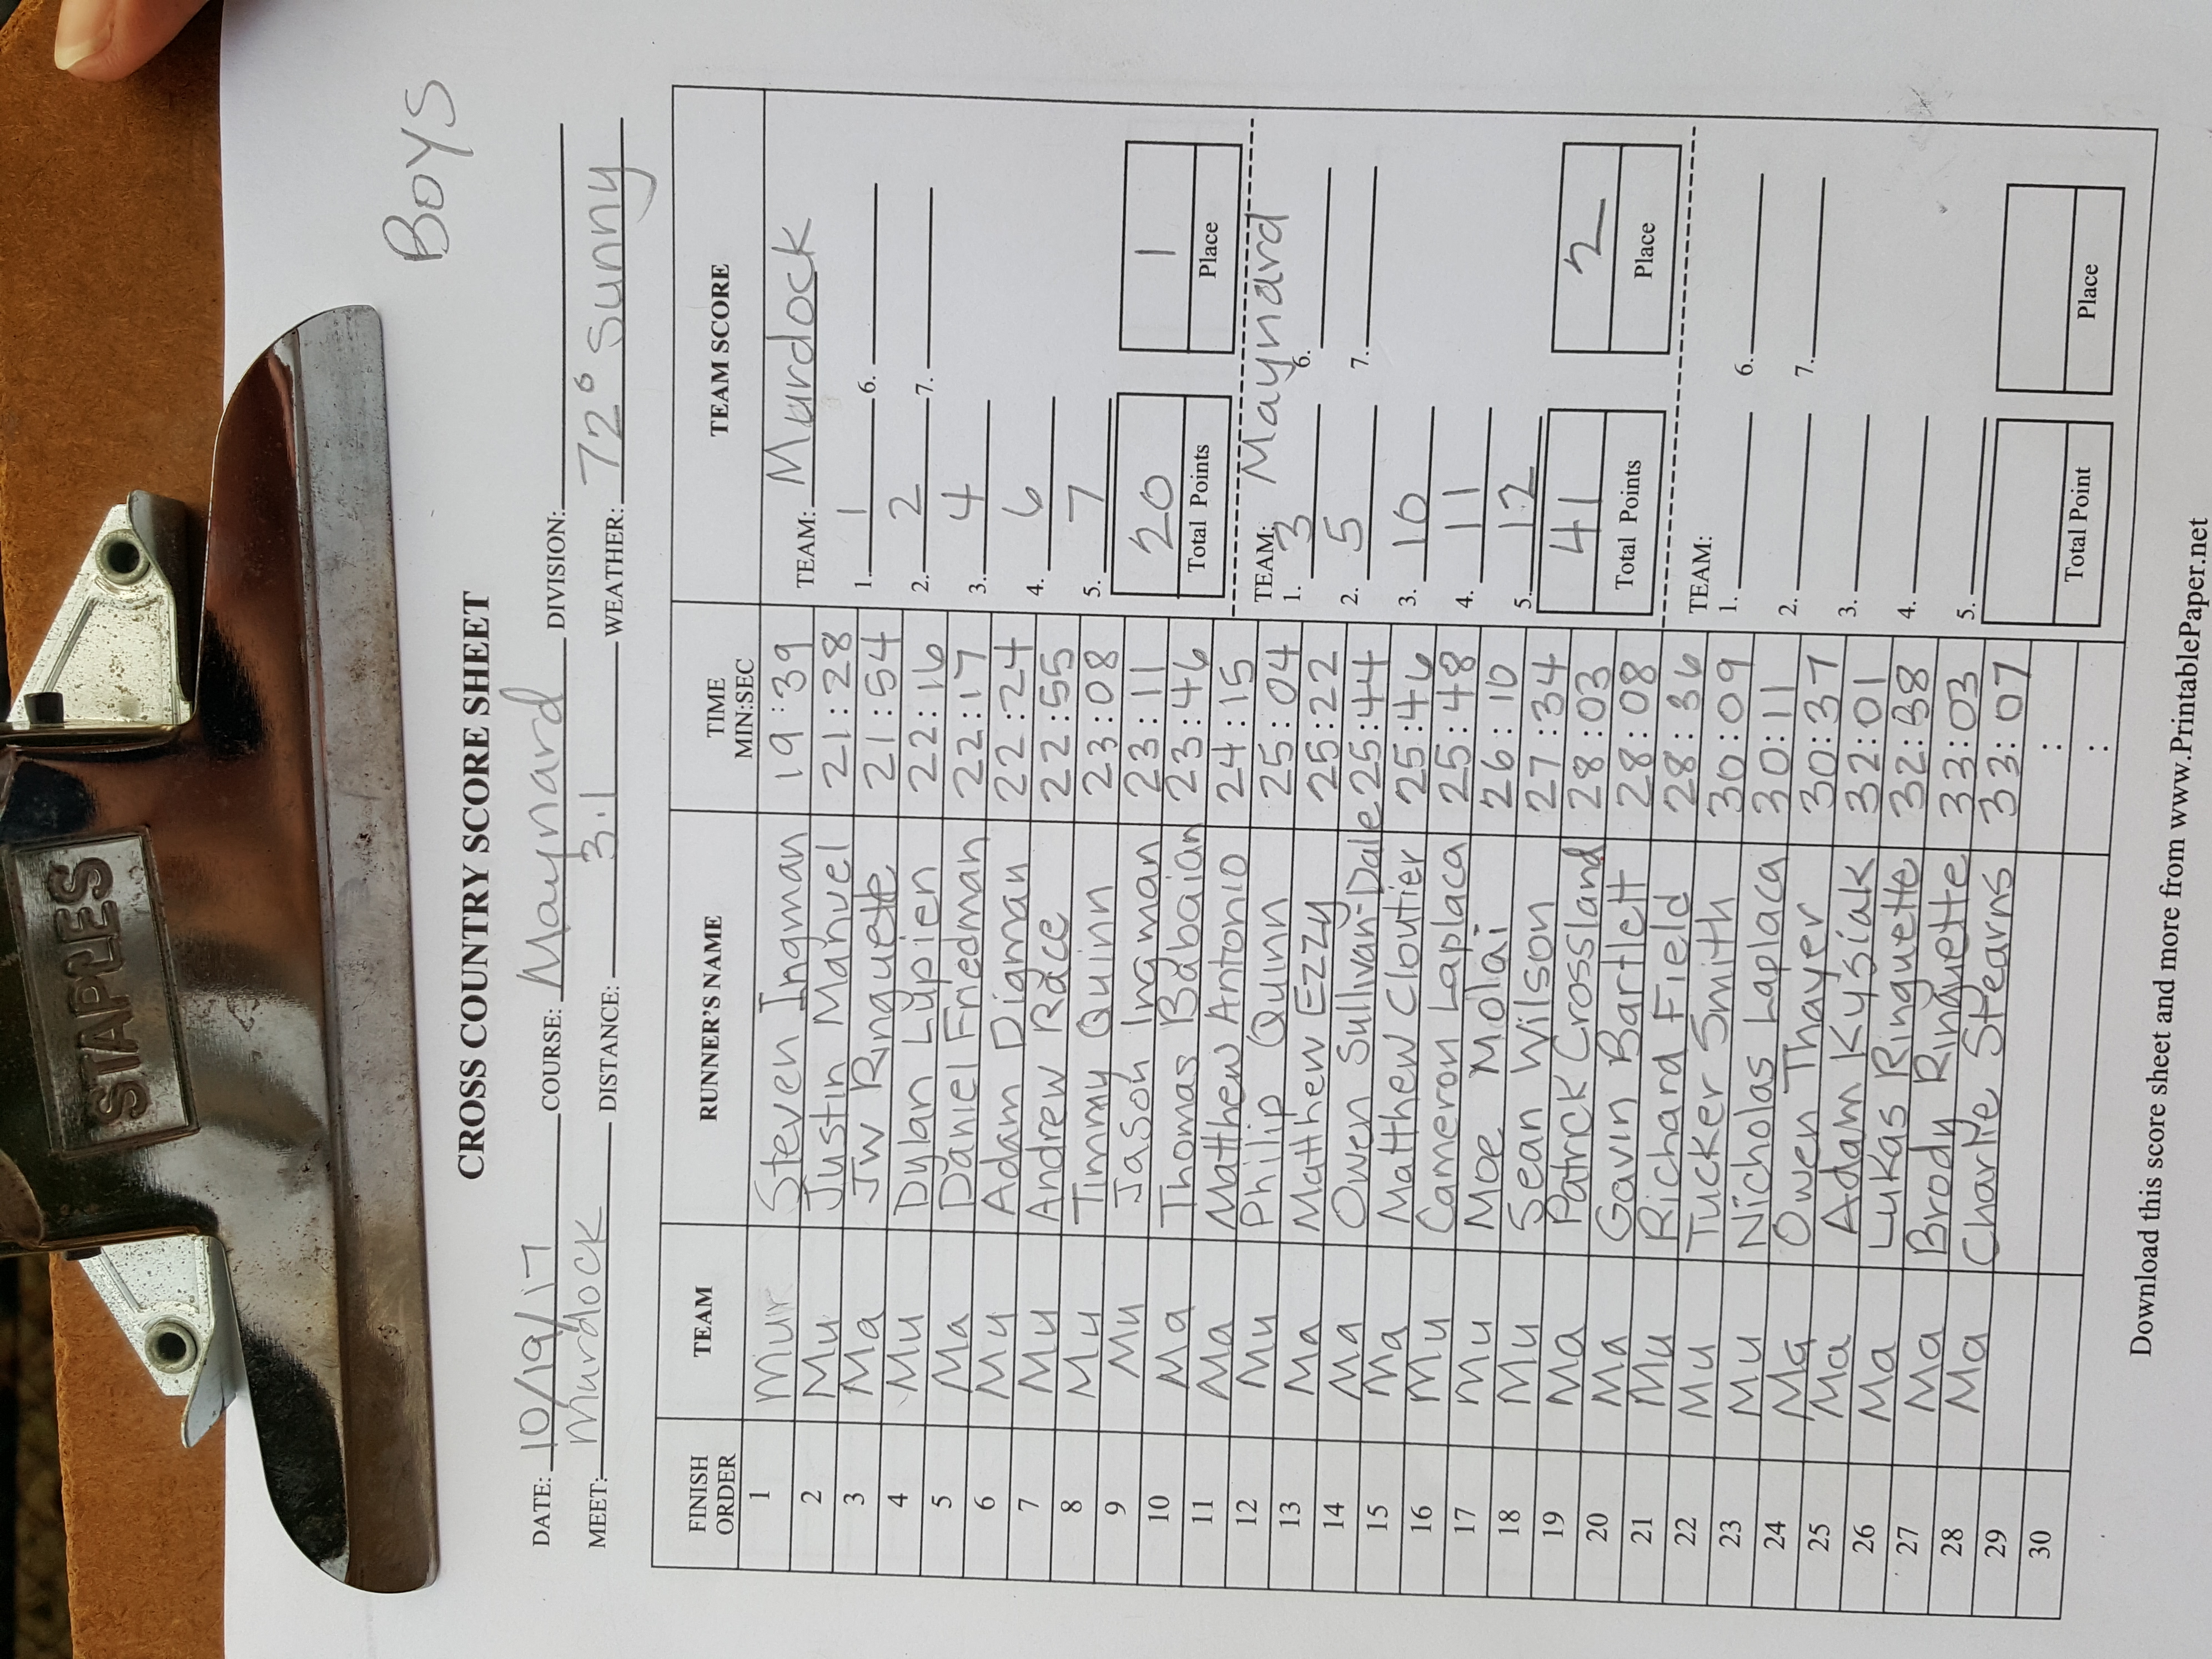 STAPLES
Boys
CROSS COUNTRY SCORE SHEET
DATE: 10/19/17 COURSE: Maynard DIVISION:
MEET: Murdock DISTANCE: 3.1 WEATHER: 72° Sunny
FINISH ORDER TEAM RUNNER'S NAME TIME MIN:SEC TEAM SCORE
1 Mur Steven Ingman 19:39
2 Mu Justin Manuel 21:28
3 Ma JW Ringuette 21:54
4 Mu Dylan Lupien 22:16
5 Ma Daniel Friedman 22:17
6 Mu Adam Digman 22:24
7 Mu Andrew Race 22:55
8 Mu Timmy Quinn 23:08
9 Mu Jason Ingman 23:11
10 Ma Thomas Babaian 23:46
11 Ma Matthew Antonio 24:15
12 Mu Philip Quinn 25:04
13 Ma Matthew Ezzy 25:22
14 Ma Owen Sullivan-Dale 25:44
15 Ma Matthew Cloutier 25:46
16 Mu Cameron Laplaca 25:48
17 Mu Moe Molai 26:10
18 Mu Sean Wilson 27:34
19 Ma Patrick Crossland 28:03
20 Ma Gavin Bartlett 28:08
21 Mu Richard Field 28:36
22 Mu Tucker Smith 30:09
23 Mu Nicholas Laplaca 30:11
24 Ma Owen Thayer 30:37
25 Ma Adam Kysiak 32:01
26 Ma Lukas Ringuette 32:38
27 Ma Brody Ringuette 33:03
28 Ma Charlie Stearns 33:07
29 :
30 :
TEAM: Murdock
1. 1 6.
2. 2 7.
3. 4
4. 6
5. 7
20 1
Total Points Place
TEAM: Maynard
1. 3 6.
2. 5 7.
3. 10
4. 11
5. 12
41 2
Total Points Place
TEAM:
1. 6.
2. 7.
3.
4.
5.
Total Point Place
Download this score sheet and more from www.PrintablePaper.net